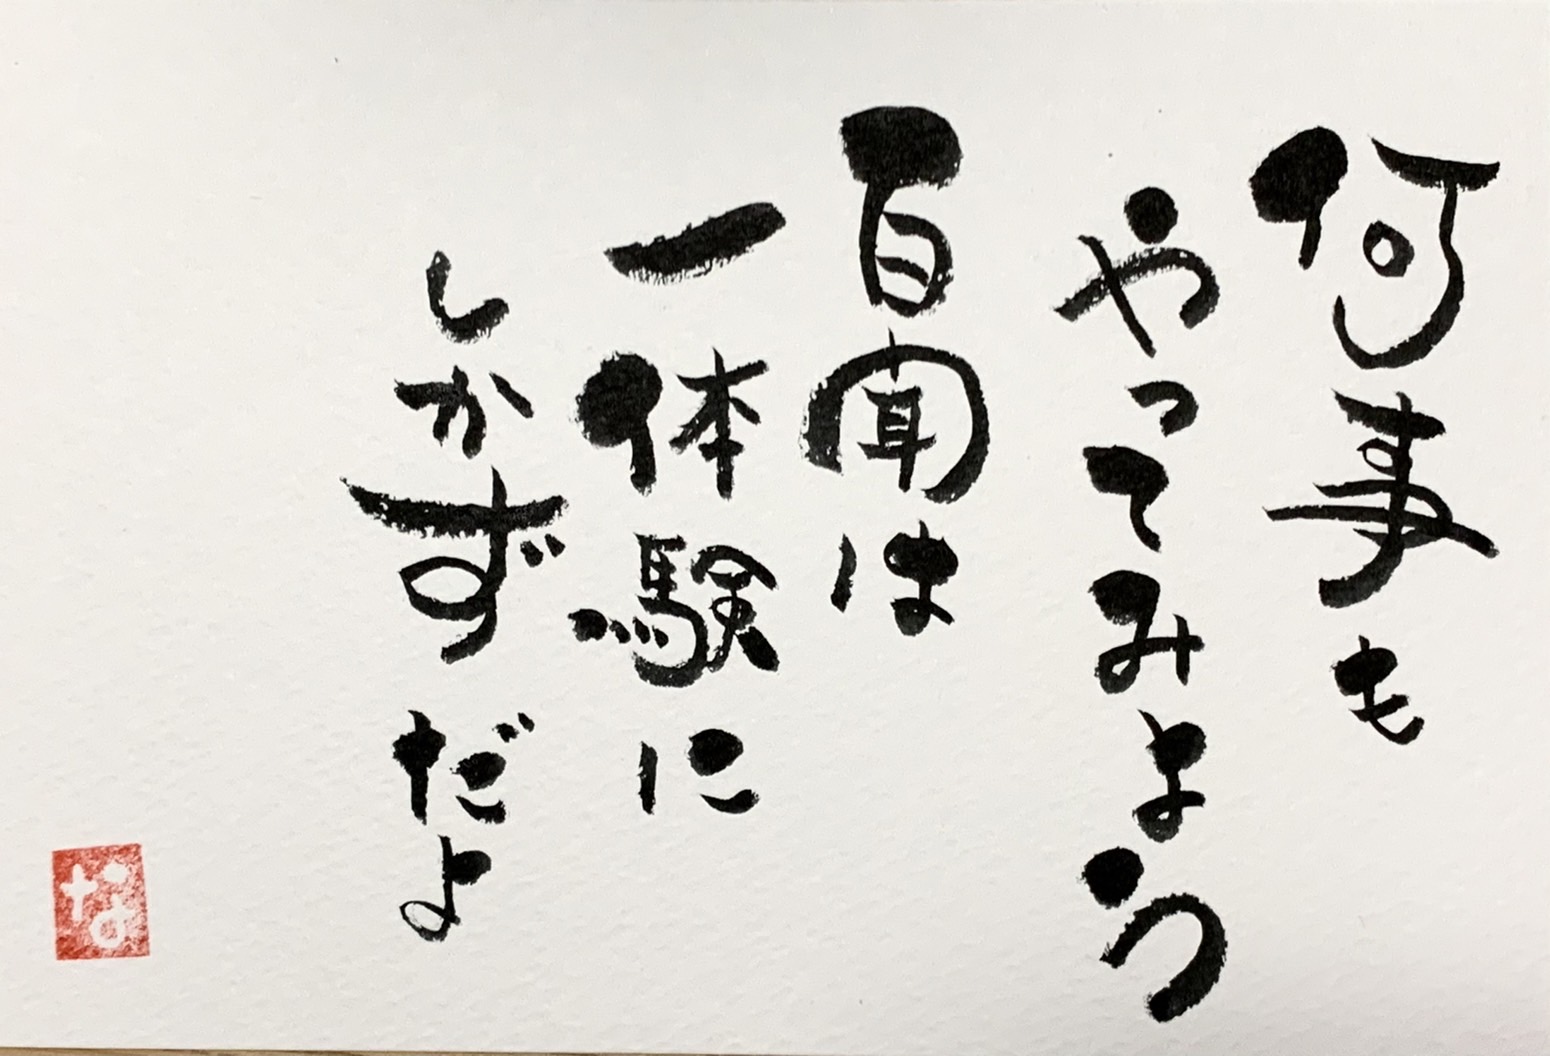 何事も
やってみよう
百聞は
一体験に
しかずだよ
な